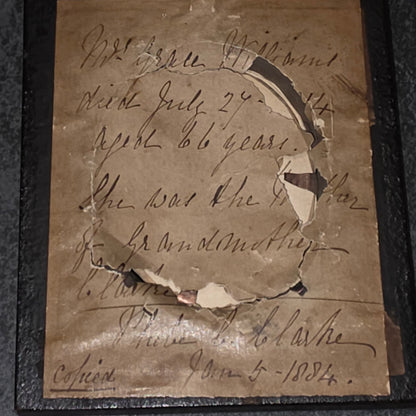 Mrs Grace Williams
died July 27 - 14
aged 66 years.
She was the Mother
of Grandmother
Clarke
C. Clarke
copied Jan 5 - 1884.